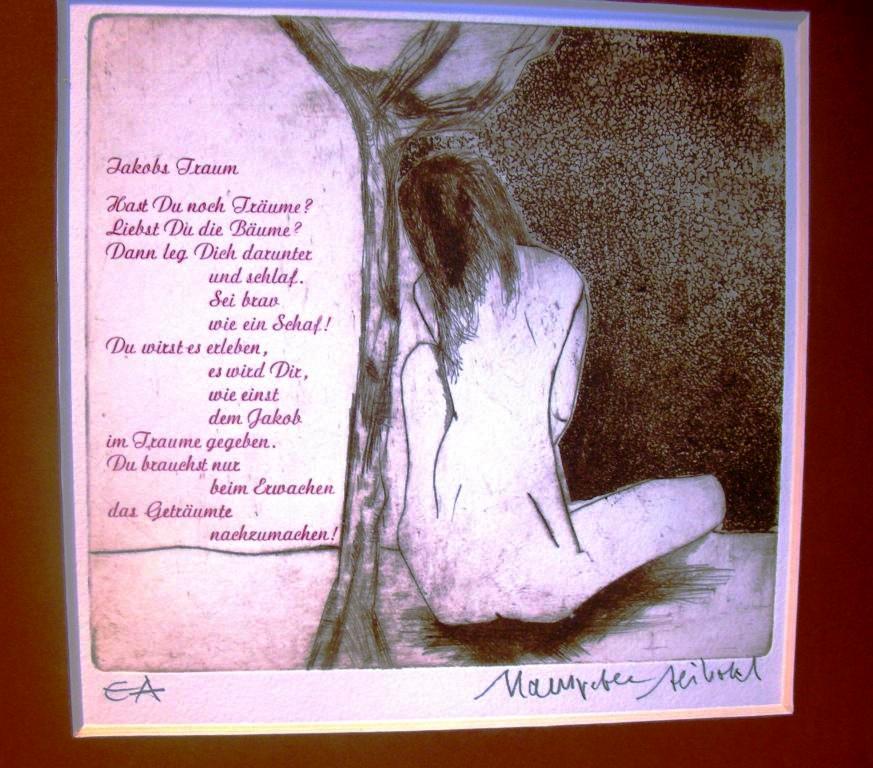 Jakobs Traum
Hast Du noch Träume?
Liebst Du die Bäume?
Dann leg Dich darunter
und schlaf.
Sei brav
wie ein Schaf!
Du wirst es erleben,
es wird Dir,
wie einst
dem Jakob
im Traume gegeben.
Du brauchst nur
beim Erwachen
das Geträumte
nachzumachen!
EA